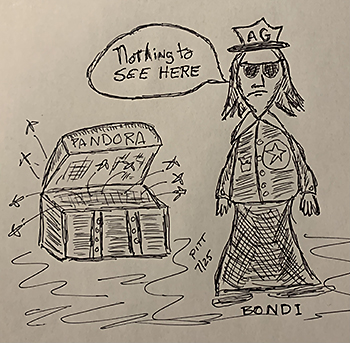 AG
Nothing to
SEE HERE
PANDORA
PiTT
7/25
BONDI